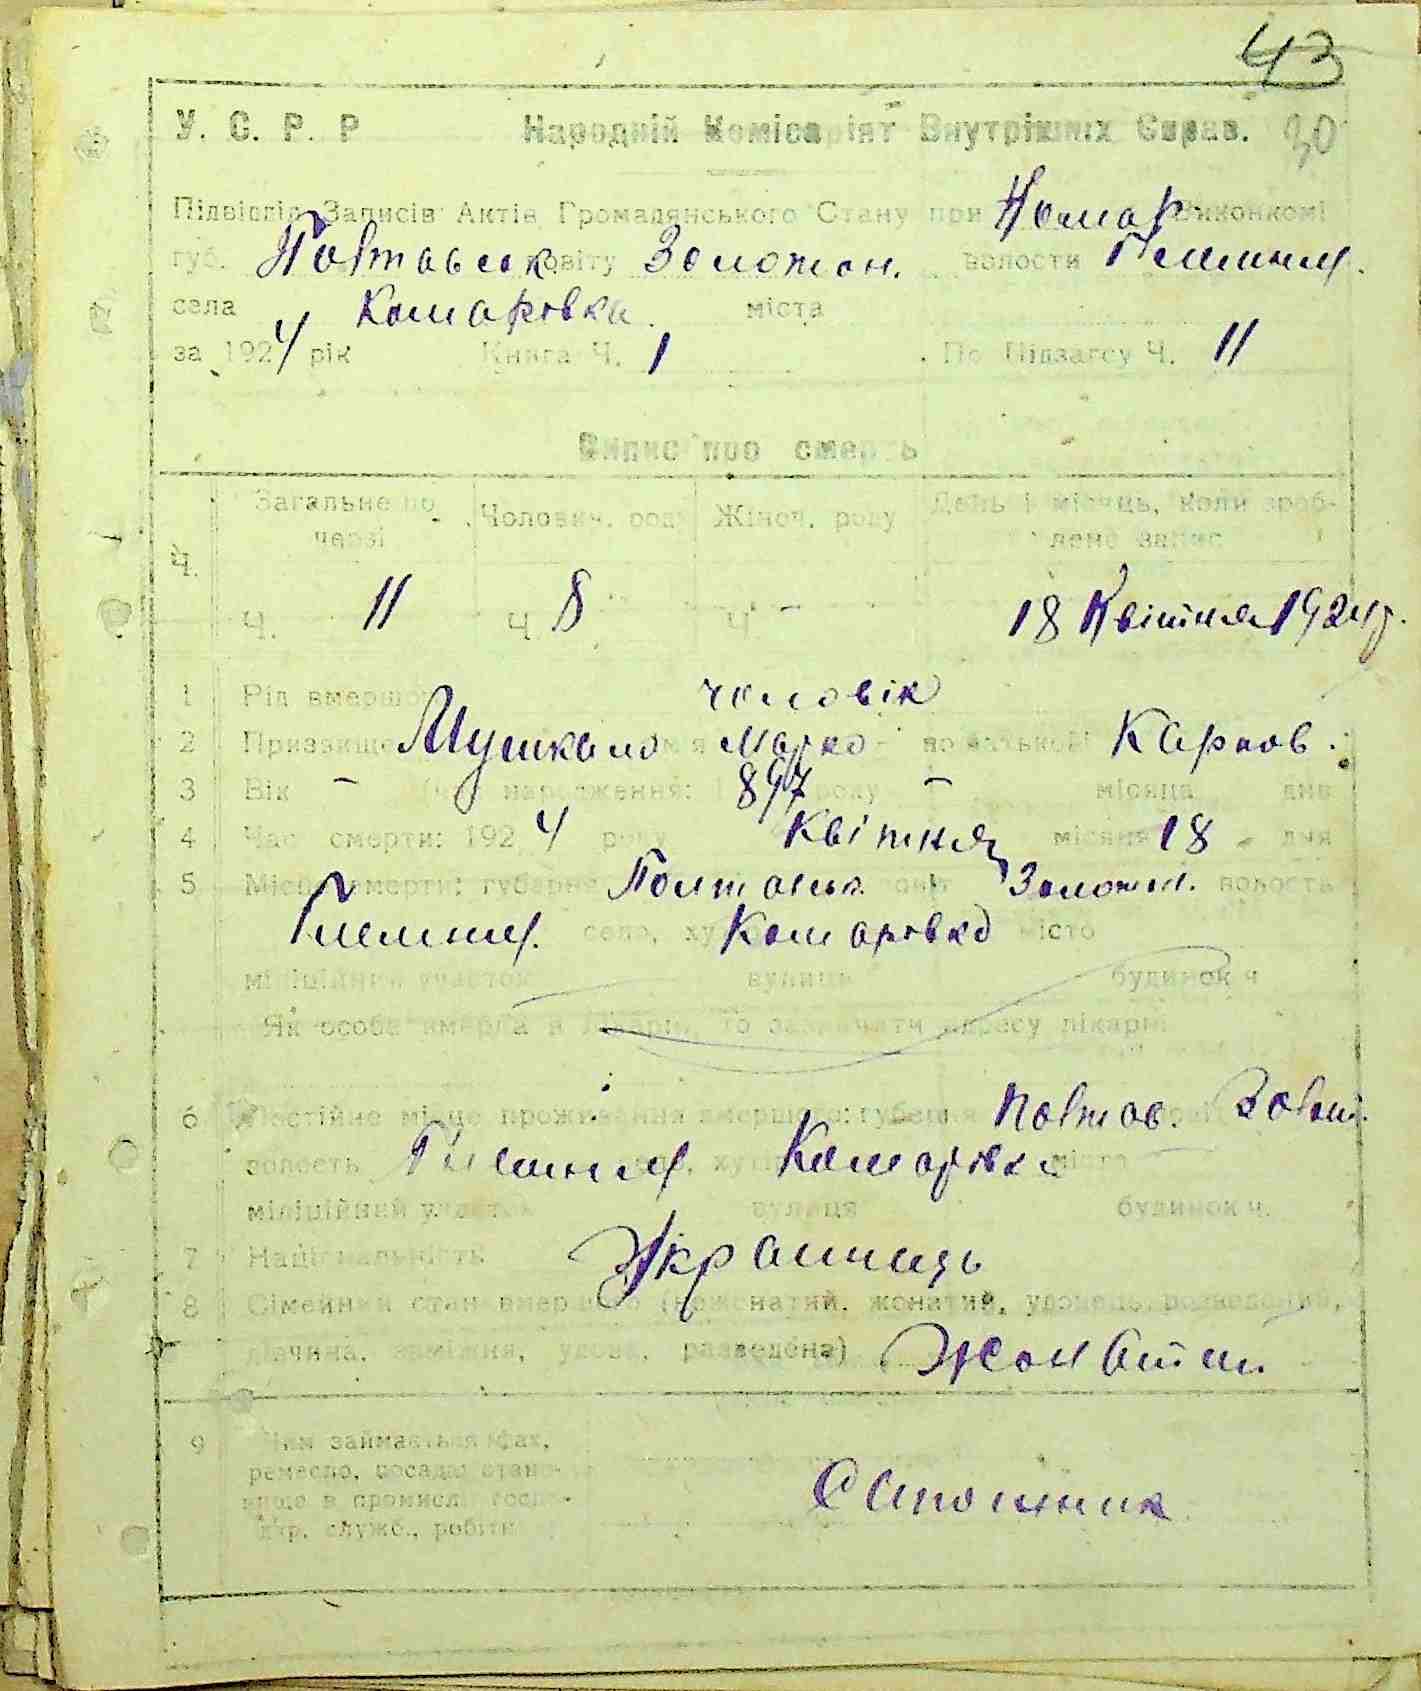 43
У. С. Р. Р Народній Комісаріят Внутрішніх Справ. 30
Підвідділ Записів Актів Громадянського Стану при Комар. Виконкомі
губ. Полтавськ. повіту Золотон. волости
села Комаровка міста
за 1924 рік Книга Ч. 1 По Підзагсу Ч. 11
Випис про смерть
Ч. Загальне по черзі Чоловіч. роду Жіноч. роду День і місяць, коли зроб-
лено запис
Ч. 11 Ч 8 Ч - 18 Квітня 1924 р.
1 Рід вмершого чоловік
2 Прізвище Мушкало ім'я Марко по батькові Карпов.
3 Вік - (час народження: 1897 року - місяця дня
4 Час смерти: 1924 року Квітня місяця 18 дня
5 Місце смерти: губерня Полтавськ. повіт Золотон. волость
село, хутір Комаровка місто
міліційний участок вулиця будинок ч
Як особа вмерла в лікарні, то зазначити адресу лікарні
6 Постійне місце проживання вмершого: губерня Полтав. Золот.
волость село, хутір Комаровка місто
міліційний участок вулиця будинок ч.
7 Національність Українець
8 Сімейний стан вмершого (неженатий, жонатий, удовець, розведений,
дівчина, заміжня, удова, разведена) Жонатий
9 Чим займається (фах,
ремесло, посада, стано-
вище в промислі, госпо-
дар, служб., робітн
Сапожник